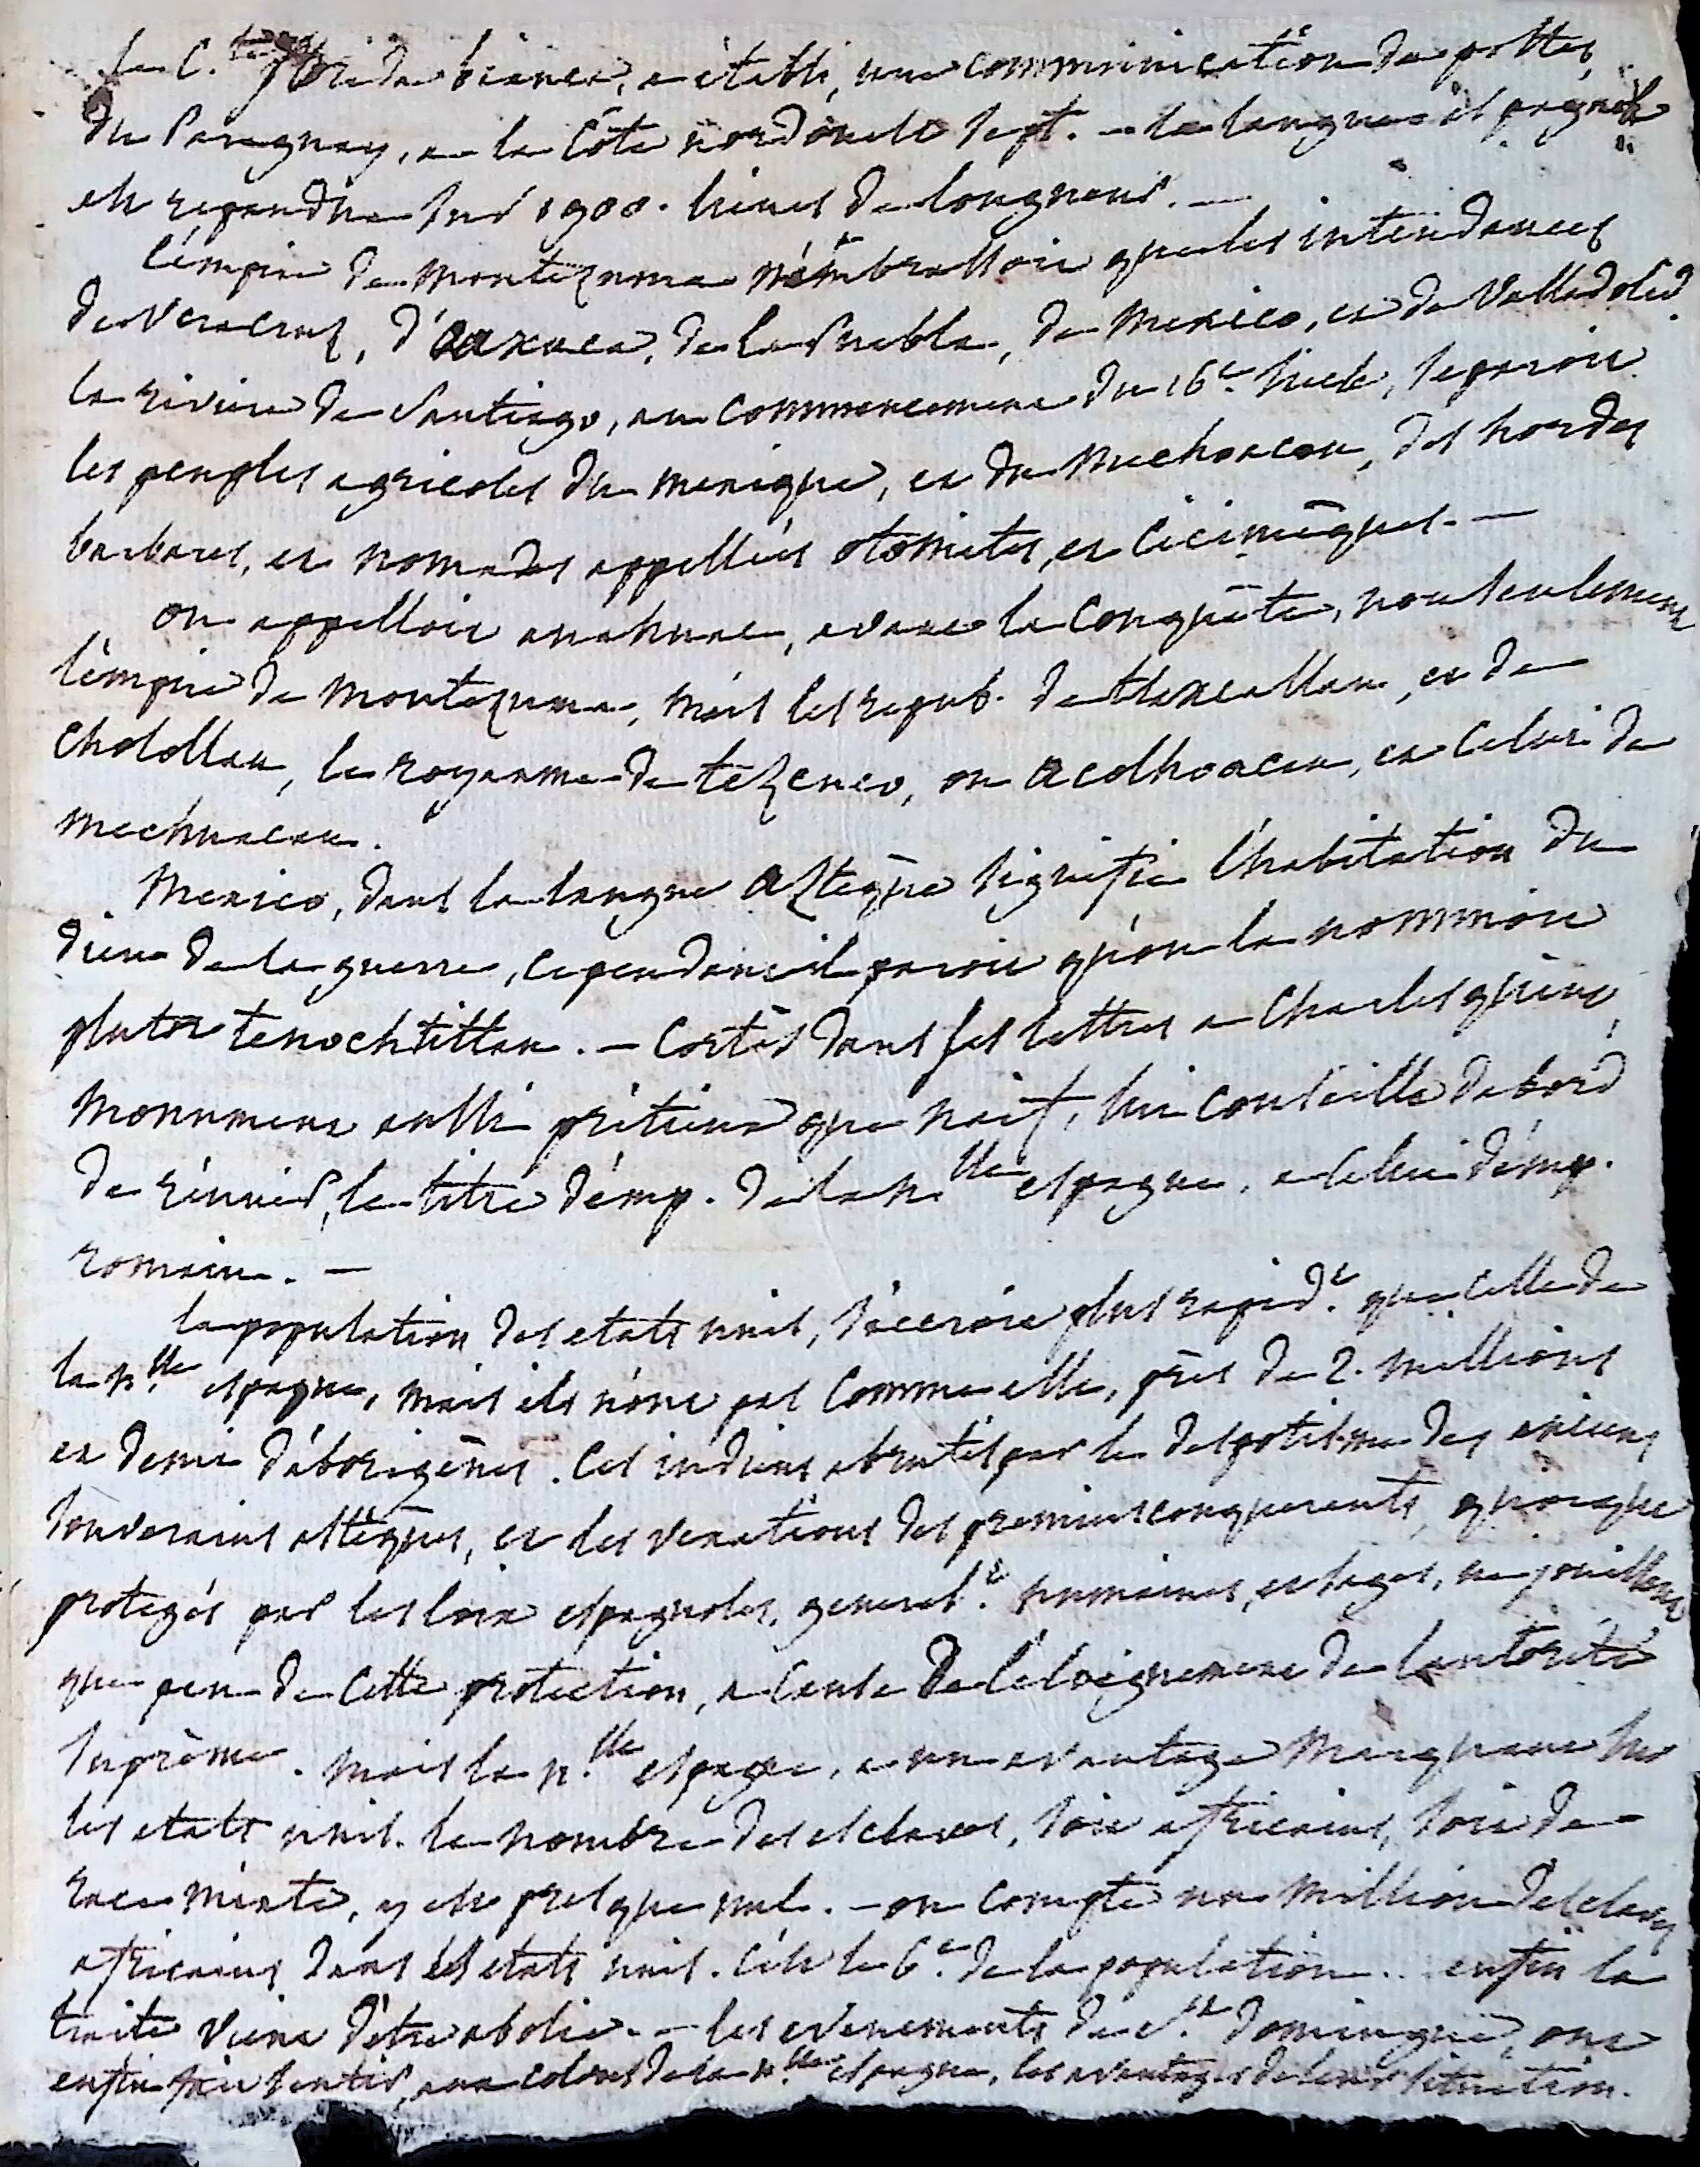 le C.te florida bianca, a établi, une communication de postes,
du Paraguay, a la Côte nord ouest sept. - la langue espagnole
est repandue sur 1900. lieues de longueur. —
l'empire de montezuma n'embrassoit que les intendances
de Veracruz, d'Oaxaca, de la Puebla, de Mexico, et de Valladolid.
la riviere de Santiago, au commencement du 16.e siecle, separoit
les peuples agricoles du mexique, et du Mechoacan, des hordes
barbares, et nomades appellées otomites, et Cicimèques. —
on appelloit anahuac, avant la Conquête, non seulement
l'empire de Montezuma, mais les repub. de tlaxcallan, et de
Cholollan, le royaume de tezcuco, ou Acolhoacan, et Celui de
mechuacan.
Mexico, dans la langue Aztèque signifie l'habitation du
dieu de la guerre, cependant il paroit qu'on la nommoit
plutot tenochtitlan. — Cortès dans ses lettres a Charles quint,
Monument aussi prétieux que naif, lui conseille d'abord
de réunir, le titre d'emp. de la n.lle espagne, a Celui d'emp.
romain. —
la population des etats unis, s'accroit plus rapid.t que Celle de
la n.lle espagne, mais ils n'ont pas Comme elle, près de 2. millions
et demi d'aborigènes. Ces indiens abrutis par le despotisme des anciens
souverains astèques, et les vexations des premiers conquerents, quoique
protegés par les loix espagnoles, general.t humaines, et sages, ne jouissent
que peu de Cette protection, a Cause de l'eloignement de l'autorité
suprème. mais la n.lle espagne, a un avantage Marquant sur
les etats unis. le nombre des esclaves, soit africains, soit de
race mixte, y est presque nul. — on compte un Million d'esclaves
africains dans les etats unis. C'est le 6.e de la population.. enfin la
traite vient d'etre abolie. — les evenements de S.t Domingue, ont
enfin fait sentir, aux colons de la n.lle espagne, les avantages de leur situation.